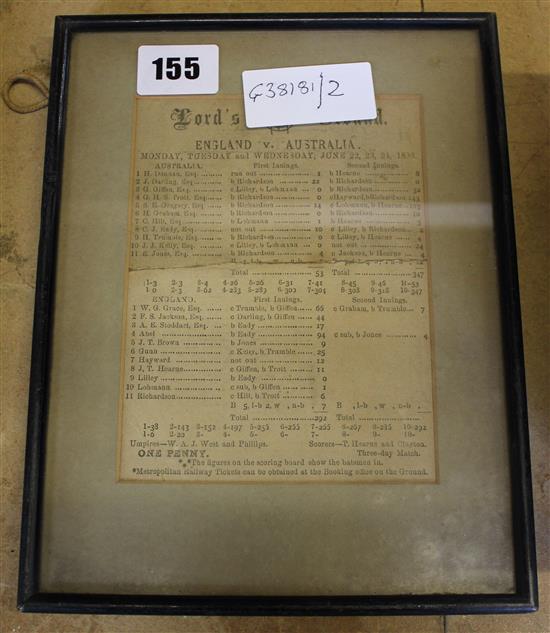 155
G38181/2
Lord's Ground.
ENGLAND v. AUSTRALIA.
MONDAY, TUESDAY and WEDNESDAY, JUNE 22, 23, 24, 1896.
AUSTRALIA. First Innings. Second Innings.
1 H. Donnan, Esq. run out 1 b Hearne 8
2 J. Darling, Esq. b Richardson 22 b Richardson 0
3 G. Giffen, Esq. c Lilley, b Lohmann 0 b Richardson 32
4 G. H. S. Trott, Esq. b Richardson 0 c Hayward, b Richardson 143
5 S. E. Gregory, Esq. b Richardson 14 c Lohmann, b Hearne
6 H. Graham, Esq. b Richardson 0 b Richardson 10
7 C. Hill, Esq. b Lohmann 1 b Hearne 5
8 C. J. Eady, Esq. not out 10 c Lilley, b Richardson
9 H. Trumble, Esq. b Richardson 0 c Lilley, b Hearne 4
10 J. J. Kelly, Esq. c Lilley, b Lohmann 0 not out 24
11 E. Jones, Esq. b Richardson 4 c Jackson, b Hearne 4
Total 53 Total 347
1-3 2-3 3-4 4-26 5-26 6-31 7-41 8-45 9-46 10-53
1-0 2-3 3-62 4-283 5-289 6-300 7-304 8-308 9-318 10-347
ENGLAND. First Innings. Second Innings.
1 W. G. Grace, Esq. c Trumble, b Giffen 66 c Graham, b Trumble 7
2 F. S. Jackson, Esq. c Darling, b Giffen 44
3 A. E. Stoddart, Esq. b Eady 17
4 Abel b Eady 94 c sub, b Jones 4
5 J. T. Brown b Jones 9
6 Gunn c Kelly, b Trumble 25
7 Hayward not out 12
8 J. T. Hearne c Giffen, b Trott 11
9 Lilley b Eady 0
10 Lohmann c sub, b Giffen 1
11 Richardson c Hill, b Trott 6
B 5, l-b 2, w , n-b , 7 B , l-b , w , n-b ,
Total 292 Total
1-38 2-143 3-152 4-197 5-256 6-266 7-266 8-267 9-286 10-292
1-6 2-20 3- 4- 5- 6- 7- 8- 9- 10-
Umpires—W. A. J. West and Phillips. Scorers—T. Hearne and Clayton.
ONE PENNY. Three-day Match.
*⁎*The figures on the scoring board show the batsmen in.
*Metropolitan Railway Tickets can be obtained at the Booking office on the Ground.